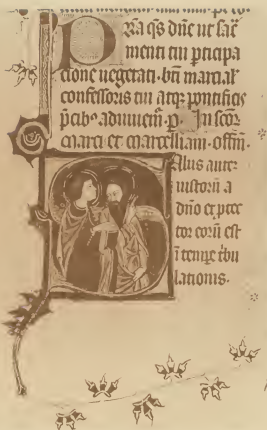 Pra q̄s dn̄e ut sac̄
menti tui p̄ticipa
cione uegetati. bt̄i marcial̓
confessoris tui atq; pontificis
p̄cib⁹ adiuuem̄. p̱. In sc̄oꝝ
marci et marcelliani. offm̄.
Salus aute᷒
iustorū a
dn̄o et p̄tec
tor eorū est
ī temp̱e t̄bu
lationis.